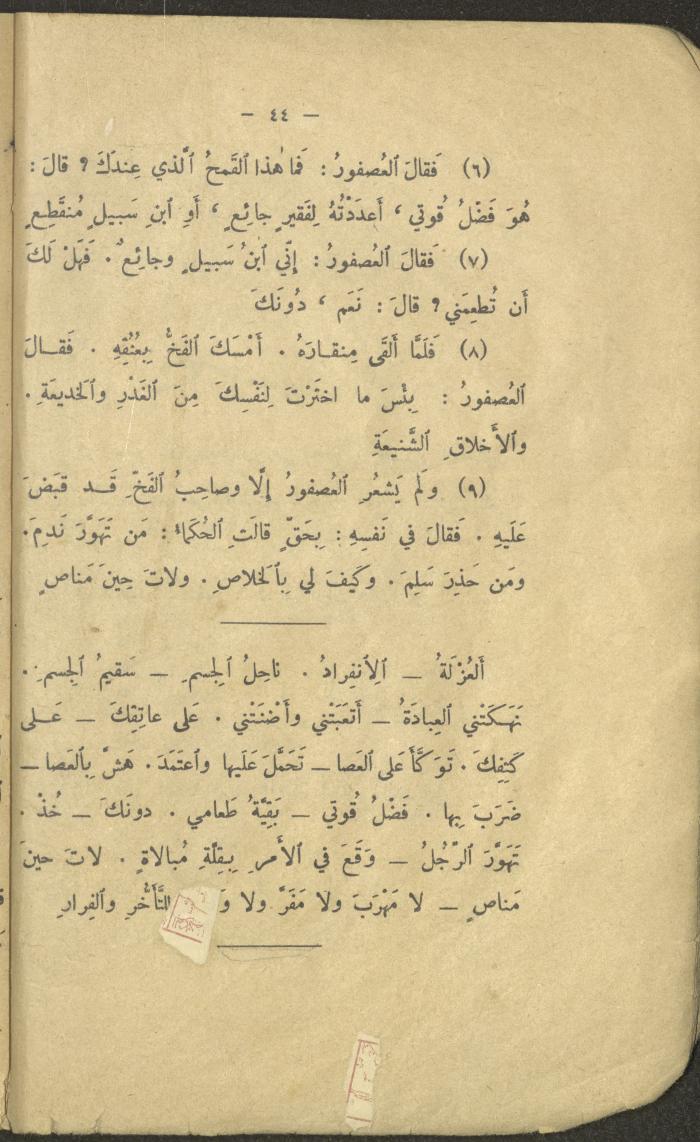 — ٤٤ —
(٦) فَقالَ ٱلعُصفورُ: فَما هٰذا القَمحُ ٱلَّذي عِندَكَ؟ قالَ:
هُوَ فَضْلُ قُوتي، أَعدَدْتُهُ لِفَقيرٍ جائِعٍ، أَوِ ٱبنِ سَبيلٍ مُنقَطِعٍ
(٧) فَقالَ ٱلعُصفورُ: إِنّي ٱبنُ سَبيلٍ وجائِعٌ. فَهَلْ لَكَ
أَن تُطعِمَني؟ قالَ: نَعَم، دُونَكَ
(٨) فَلَمَّا أَلقَى مِنقـارَهُ. أَمْسَكَ ٱلفَخُّ بِعُنُقِهِ. فَقـالَ
ٱلعُصفورُ: بِئْسَ ما اختَرْتَ لِنَفْسِكَ مِنَ ٱلغَدْرِ وٱلخَديعَةِ.
والأَخلاقِ ٱلشَّنيعَةِ
(٩) ولَم يَشعُرِ ٱلعُصفورُ إِلَّا وصاحِبُ ٱلفَخِّ قَـد قَبَضَ
عَلَيهِ. فَقالَ في نَفسِهِ: بِحَقٍّ قالَتِ ٱلحُكَماءُ: مَن تَهَوَّرَ نَدِمَ.
ومَن حَذِرَ سَلِمَ. وكَيفَ لي بِٱلخَلاصِ. ولاتَ حِينَ مَناصٍ
أَلعُزْلَةُ — ٱلِٱنفِرادُ. ناحِلُ ٱلجِسمِ — سَقيمُ ٱلجِسمِ.
نَهَـكَتْني ٱلعِبادَةُ — أَتعَبَتْني وأَضْنَتْني. عَلى عاتِقِكَ — عَـلى
كَتِفِكَ. تَوَكَّأَ عَلى ٱلعَصا — تَحَمَّلَ عَلَيها وٱعتَمَدَ. هَشَّ بِٱلعَصا —
ضَرَبَ بِها. فَضْلُ قُوتي — بَقِيَّةُ طَعامي. دونَكَ — خُذْ.
تَهَوَّرَ ٱلرَّجُلُ — وَقَعَ في ٱلأَمرِ بِـقِلَّةِ مُبالاةٍ. لاتَ حينَ
مَناصٍ — لا مَهْرَبَ ولا مَفَرَّ ولا لِلتَّأَخُّرِ وٱلفِرارِ